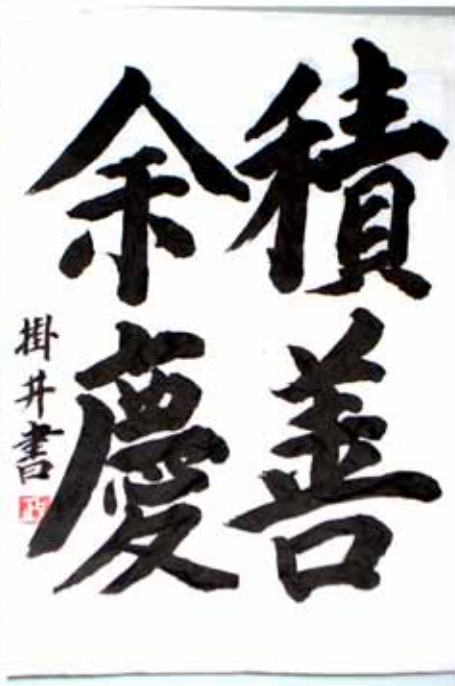 積善
余慶
掛井書